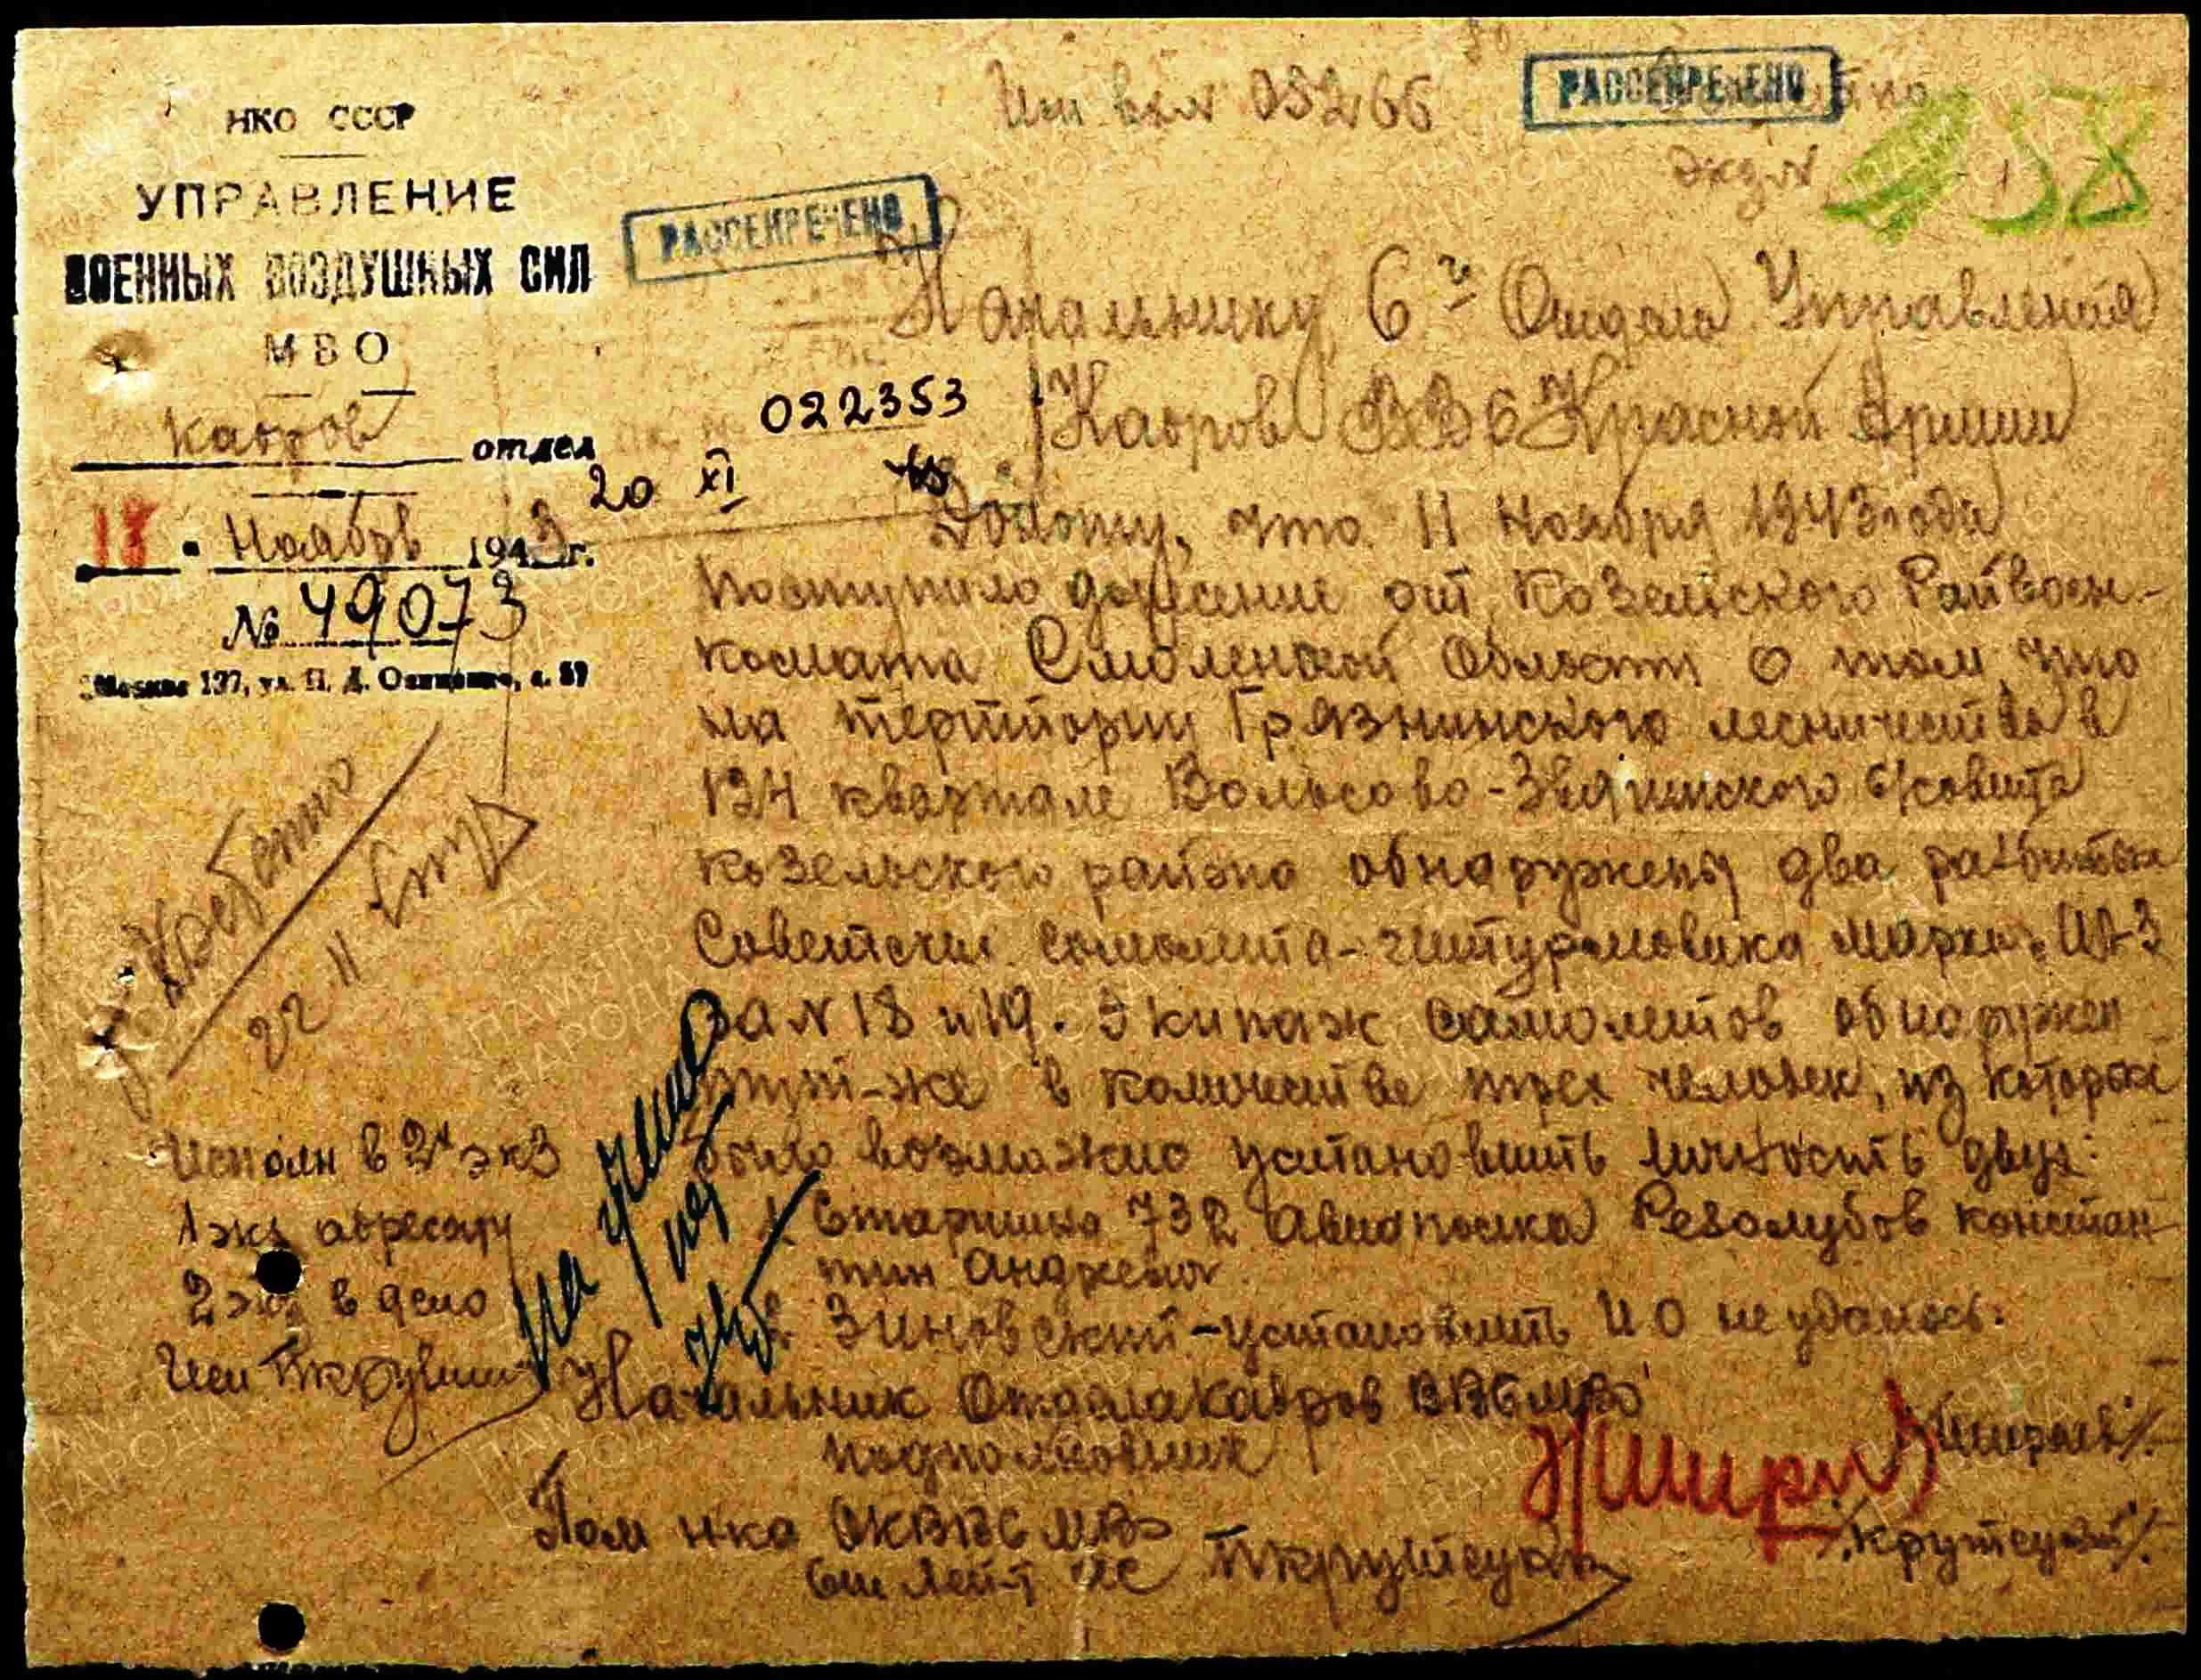 НКО СССР
УПРАВЛЕНИЕ
ВОЕННЫХ ВОЗДУШНЫХ СИЛ
МВО
Кадров отдел
18 • Ноября 1943 г.
№ 49073
Москва 137, ул. П. Д. д. 89
05266
РАССЕКРЕЧЕНО
экз №
38
РАССЕКРЕЧЕНО
022353
20 XI
Начальнику 6го Отдела Управления
Кадров ВВС Красной Армии
Доношу, что 11 Ноября 1943 года
поступило донесение от Козельского Райвоен-
комата Смоленской Области о том что
на территории Грязнинского лесничества в
134 квартале Вольсово-Звягинского с/совета
Козельского района обнаружены два разбитых
Советских самолета-штурмовика марки
за № 18 и 19. Экипаж самолетов обнаружен
тут-же в количестве трех человек, из которых
было возможно установить личность двух:
1. Старшина 732 Авиополка Резолубов констан-
тин
2. Зиновский-установить И О не удалось.
Начальник Отдела Кадров ВВС МВО
подполковник
/Ширяев/.
Пом нка ОКВВС МВО
Ст Лей-т
22 11
Исполн в 2х экз
1 экз адресату
2 экз в дело
Исп
на учете
нет
ПАМЯТЬ НАРОДА